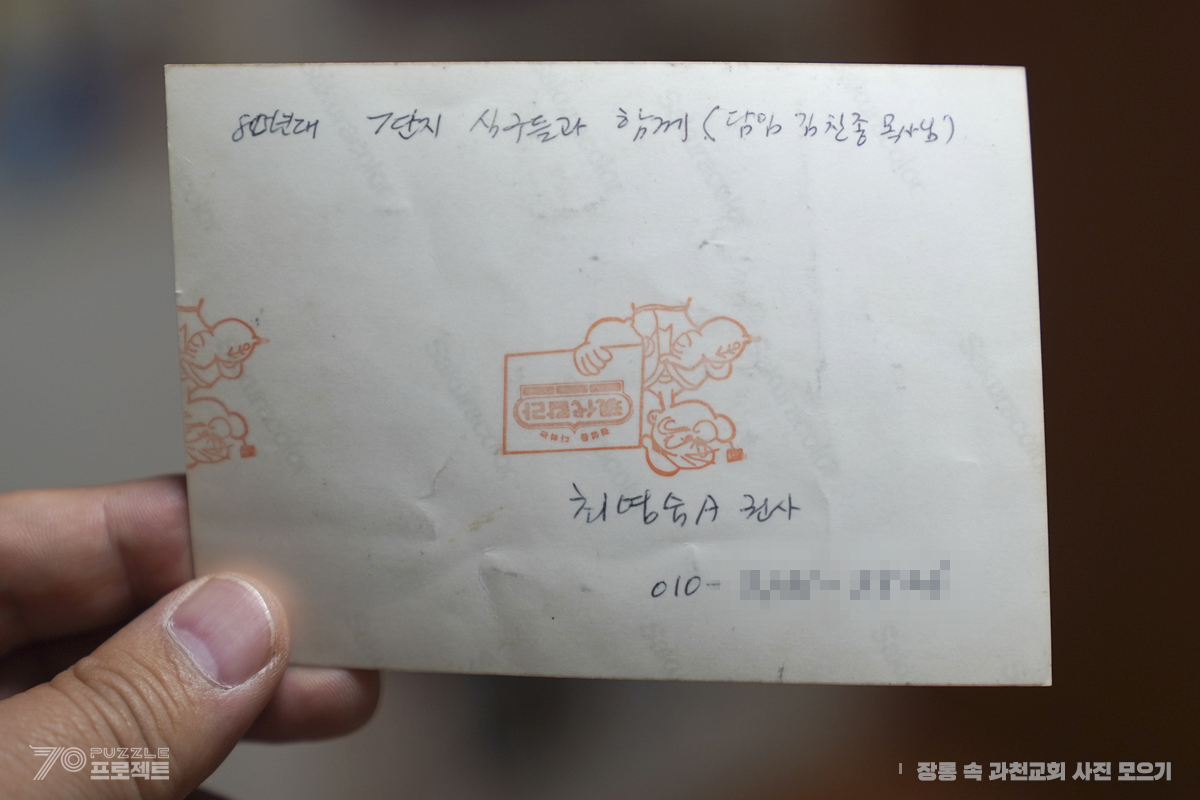 80년대 7단지 식구들과 함께 (담임 김친종 목사님)
現代칼라
최영숙A 권사
010-
70 PUZZLE 프로젝트
장롱 속 과천교회 사진 모으기